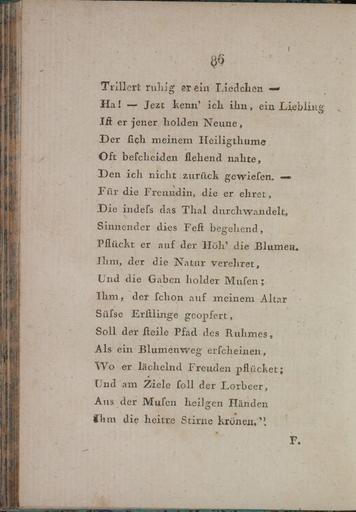 86
Trillert ruhig er ein Liedchen —
Ha! — Jezt kenn' ich ihn, ein Liebling
Iſt er jener holden Neune,
Der ſich meinem Heiligthume
Oft beſcheiden flehend nahte,
Den ich nicht zurück gewieſen. —
Für die Freundin, die er ehret,
Die indeſs das Thal durchwandelt,
Sinnender dies Feſt begehend,
Pflückt er auf der Höh' die Blumen.
Ihm, der die Natur verehret,
Und die Gaben holder Muſen;
Ihm, der ſchon auf meinem Altar
Süſse Erſtlinge geopfert,
Soll der ſteile Pfad des Ruhmes,
Als ein Blumenweg erſcheinen,
Wo er lächelnd Freuden pflücket;
Und am Ziele ſoll der Lorbeer,
Aus der Muſen heilgen Händen
Ihm die heitre Stirne krönen."
F.